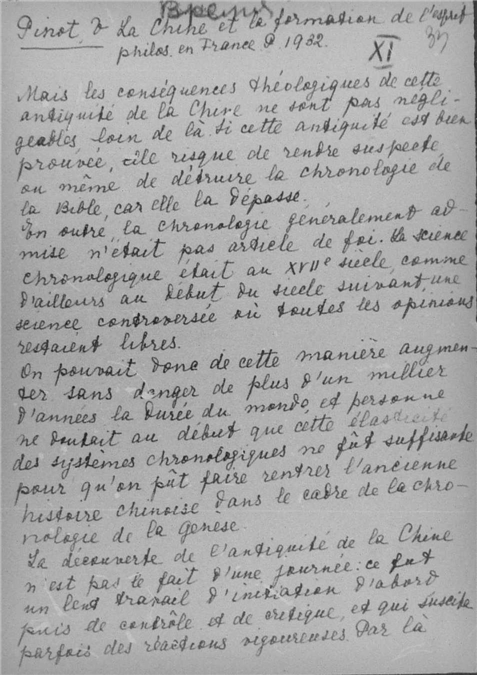 Время
Pinot, V La Chine et la formation de l'esprit
philos. en France P. 1932.
XI
Mais les conséquences théologiques de cette
antiquité de la Chine ne sont pas négli-
geables, loin de là si cette antiquité est bien
prouvée, elle risque de rendre suspecte,
ou même de détruire la chronologie de
la Bible, car elle la dépasse.
En outre, la chronologie généralement ad-
mise n'était pas article de foi. La science
chronologique était au XVIIe siècle, comme
d'ailleurs au début du siecle suivant une
science controversée où toutes les opinions
restaient libres.
On pouvait donc de cette manière augmen-
ter sans danger de plus d'un millier
d'années la durée du monde, et personne
ne doutait au début que cette élasticité
des systèmes chronologiques ne fût suffisante
pour qu'on pût faire rentrer l'ancienne
histoire chinoise dans le cadre de la chro-
nologie de la Genèse.
La découverte de l'antiquité de la Chine
n'est pas le fait d'une journée: ce fut
un lent travail d'initiation d'abord
puis de contrôle et de critique, et qui suscita
parfois des réactions vigoureuses. Par là